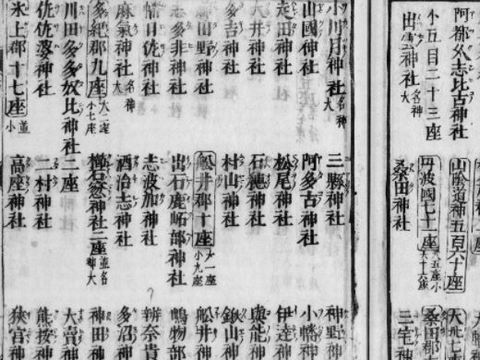 阿都久志比古神社
山陰道神五百六十座 大卅七
小五百二十三座
丹波國七十一座 大五座 小六十六座
桑田郡
出雲神社 名神大
桑田神社
三宅
小川月神社 名神大
三縣神社
神野神
山國神社
阿多古神社
小幡神
走田神社
松尾神社
伊達神
大井神社
石穗神社
與能神
多吉神社
村山神社
鍬山神
田野神社
船井郡十座 大一座 小九座
船井神
志多非神社
出石鹿部神社
嶋物部
幡日佐神社
志波加神社
奈貴
麻氣神社 名神大
酒治志神社
多沼神
多紀郡九座 大二座 小七座
櫛石窓神社二座 並名神大
神田神
川田多多奴比神社二座
大賣神
佐佐婆神社
二村神社
熊按神
氷上郡十七座 並小
高座神社
狹宮神